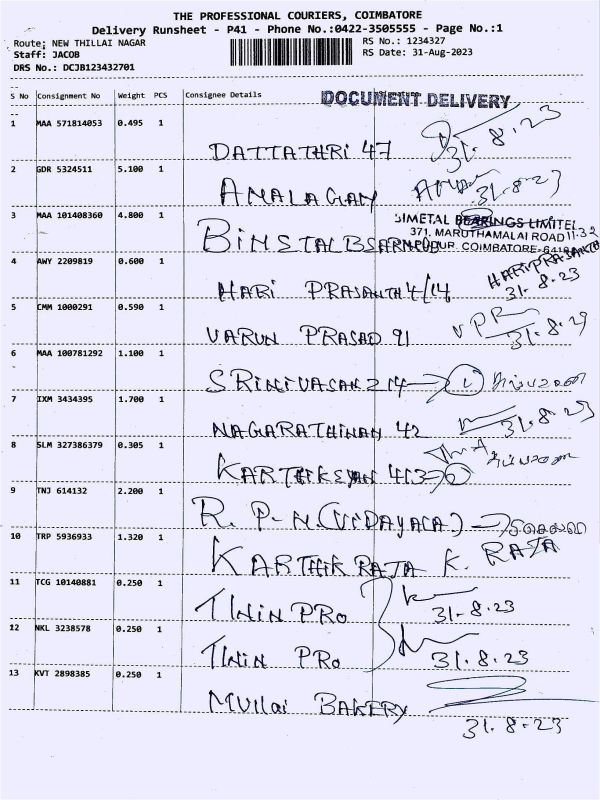 THE PROFESSIONAL COURIERS, COIMBATORE
Delivery Runsheet - P41 - Phone No.:0422-3505555 - Page No.:1
Route: NEW THILLAI NAGAR
RS No.: 1234327
Staff: JACOB
RS Date: 31-Aug-2023
DRS No.: DCJB123432701
S No Consignment No Weight PCS Consignee Details
DOCUMENT DELIVERY
1 MAA 571814053 0.495 1 DATTATHRI 47 31.8.23
2 GDR 5324511 5.100 1 31.8.23
3 MAA 101408360 4.800 1
BIMETAL BEARINGS LIMITED
371, MARUTHAMALAI ROAD
COIMBATORE
4 AWY 2209819 0.600 1 HARI PRASANTH 4/14 HARIPRASANTH
31.8.23
5 CMM 1000291 0.590 1 VARUN PRASAD 91 VPR 31.8.23
6 MAA 100781292 1.100 1 SRINIVASAN 214
7 IXM 3434395 1.700 1 NAGARATHINAM 42 31.8.23
8 SLM 327386379 0.305 1 KARTHIKEYAN 413
9 TNJ 614132 2.200 1 R. P. N. (VIDAYALA)
10 TRP 5936933 1.320 1 KARTHIK RAJA K. RAJA
11 TCG 10140881 0.250 1 TWIN PRO 31.8.23
12 NKL 3238578 0.250 1 TWIN PRO 31.8.23
13 KVT 2898385 0.250 1 Mullai BAKERY
31.8.23